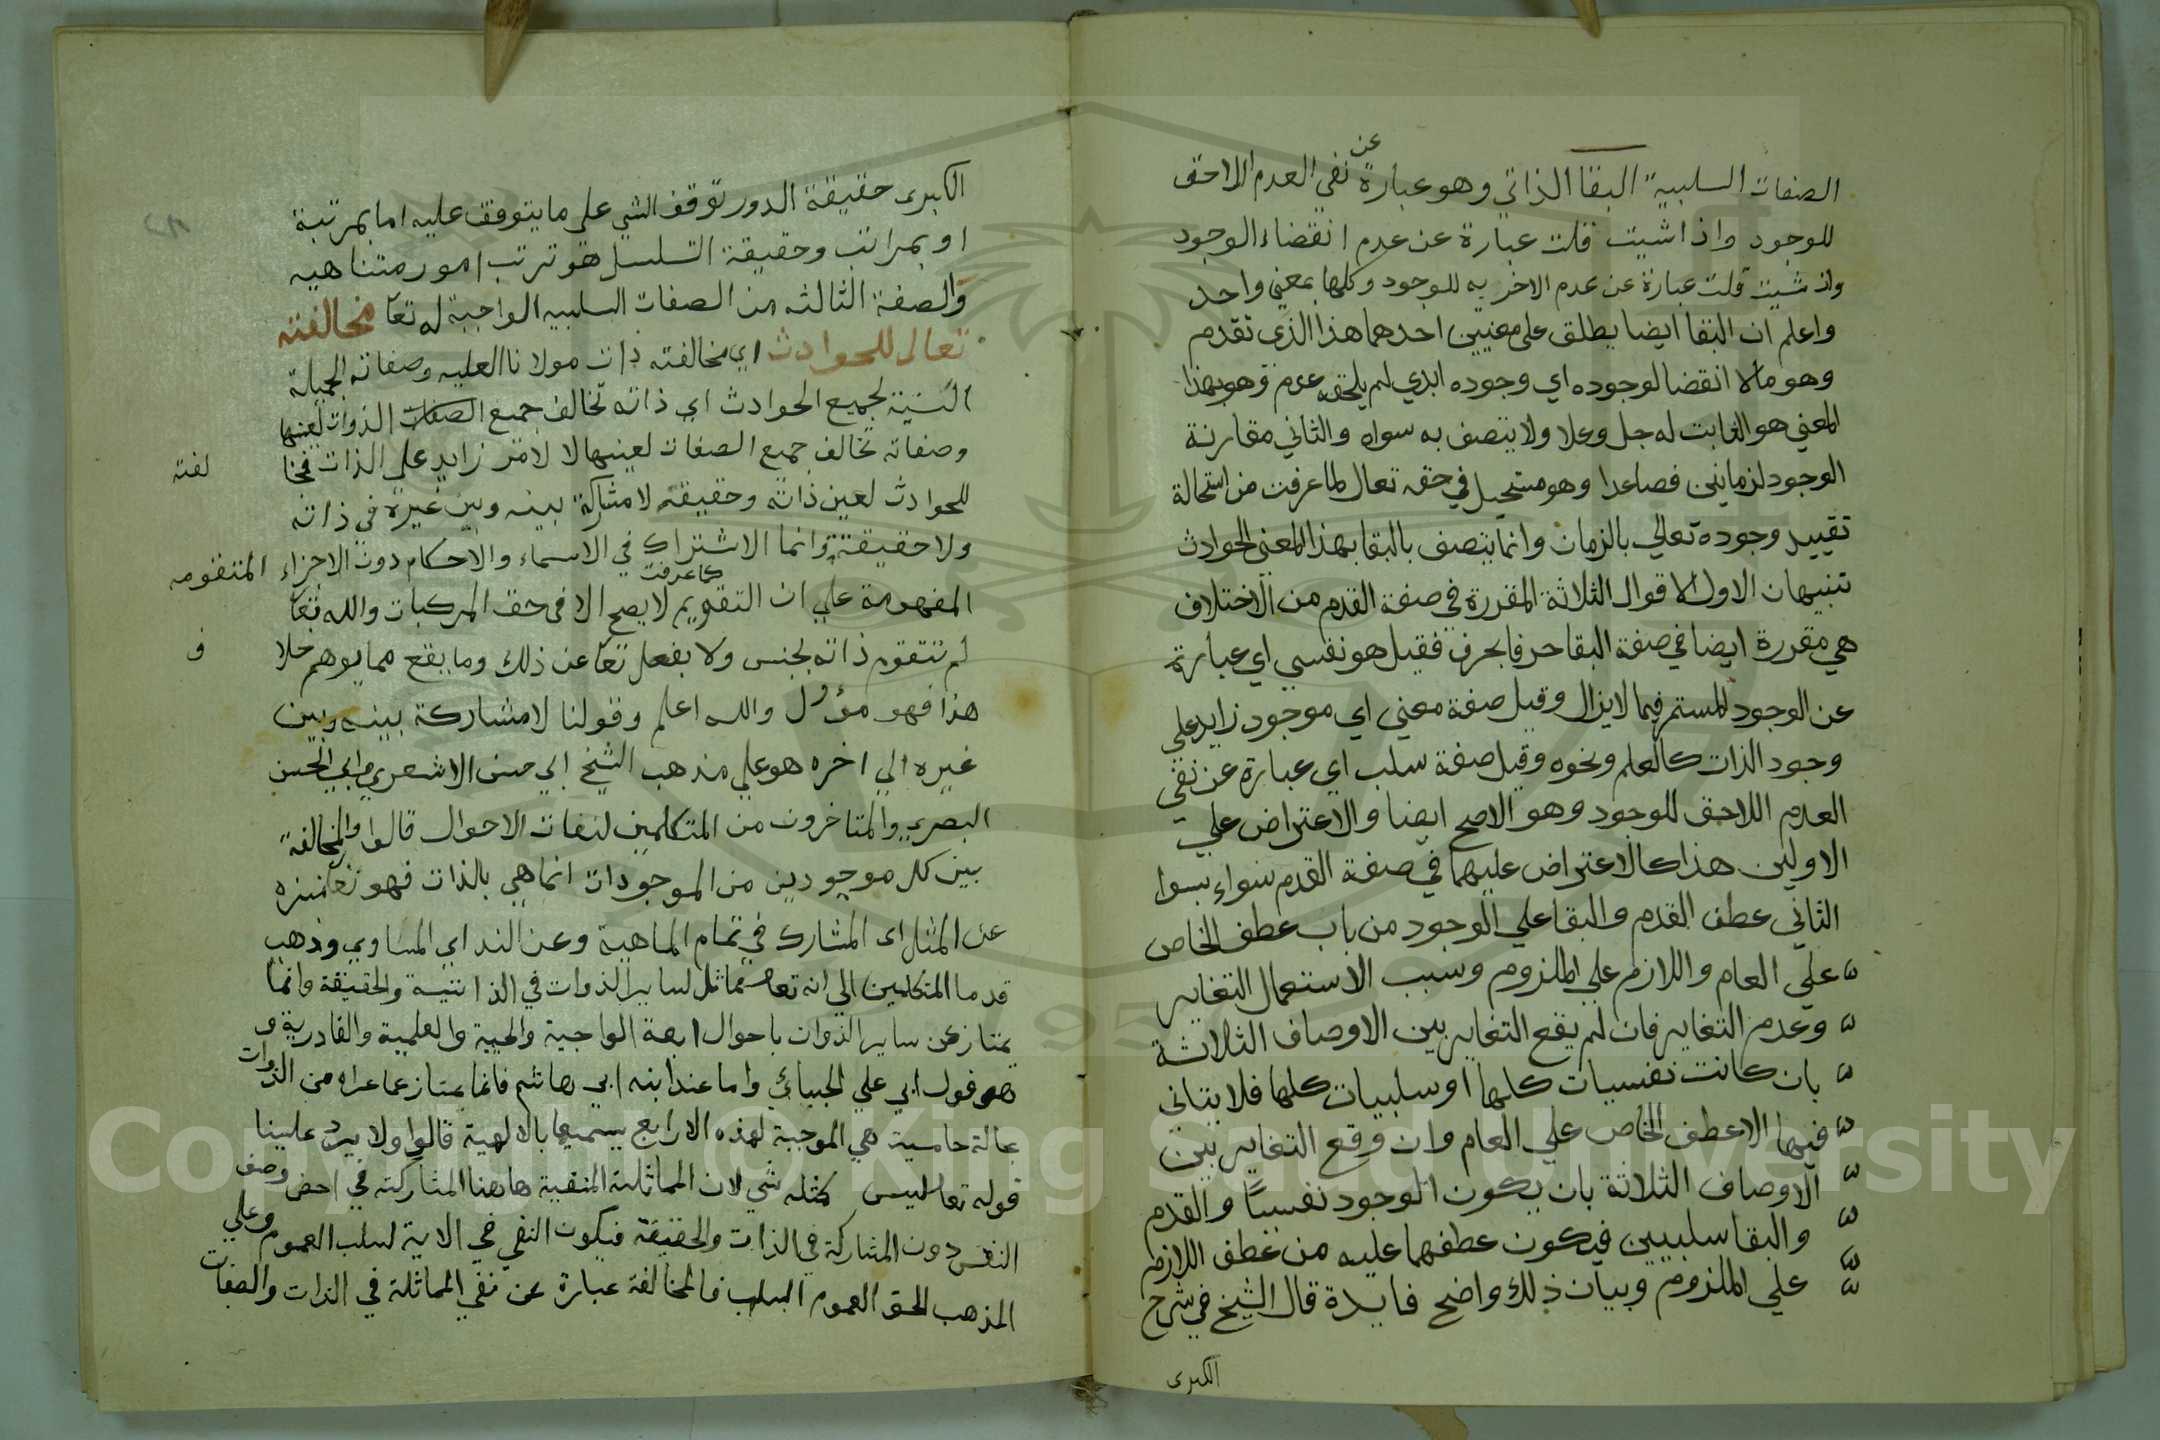 الصفات السلبية البقا الذاتي وهو عبارة عن نفي العدم اللاحق
للوجود واذا شيت قلت عبارة عن عدم انقضاء الوجود
وان شيت قلت عبارة عن عدم الاخريه للوجود وكلها بمعني واحد
واعلم ان البقا ايضا يطلق علي معنيين احدهما هذا الذي تقدم
وهو مالا انقضا لوجوده اي وجوده ابدي لم يلحقه عدم وهو بهذا
المعني هو الثابت له جل وعلا ولا يتصف به سواه والثاني مقارنة
الوجود لزمانين فصاعدا وهو مستحيل في حقه تعالي لما عرفت من استحالة
تقييد وجوده تعالي بالزمان وانما يتصف بالبقا بهذا المعني الحوادث
تنبيهان الاول الاقوال الثلاثة المقررة في صفة القدم من الاختلاف
هي مقررة ايضا في صفة البقا حرفا بحرف فقيل هو نفسي اي عبارة
عن الوجود المستمر فيما لايزال وقيل صفة معني اي موجود زايد علي
وجود الذات كالعلم ونحوه وقيل صفة سلب اي عبارة عن نفي
العدم اللاحق للوجود وهو الاصح ايضا والاعتراض علي
الاولين هذا كالاعتراض عليهما في صفة القدم سواء بسوا
الثاني عطف القدم والبقا علي الوجود من باب عطف الخاص
علي العام واللازم علي الملزوم وسبب الاستعمال التغاير
وعدم التغاير فان لم يقع التغاير بين الاوصاف الثلاثة
بان كانت نفسيات كلها او سلبيات كلها فلا يتاني
فيها الا عطف الخاص علي العام وان وقع التغاير بين
الاوصاف الثلاثة بان يكون الوجود نفسيا والقدم
والبقا سلبيين فيكون عطفهما عليه من عطف اللازم
علي الملزوم وبيان ذلك واضح فايدة قال الشيخ في شرح
الكبرى
الكبرى حقيقة الدور توقف الشي على ما يتوقف عليه اما بمرتبة
او بمراتب وحقيقة التسلسل هو ترتب امور متناهيه
والصفة الثالثه من الصفات السلبيه الواجبة له تعا مخالفته
تعالى للحوادث اي مخالفته ذات مولانا العليه وصفاته الجميلة
السنية لجميع الحوادث اي ذاته تخالف جميع الصفات الذوات لعينها
وصفاته تخالف جميع الصفات لعينها لا لامر زايد علي الذات فمخا
لفته
للحوادث لعين ذاته وحقيقته لا مشاركة بينه وبين غيره في ذاته
ولا حقيقة وانما الاشتراك في الاسماء والاحكام دون الاجزاء المتقومه
المفهومة علي ان التقويم كما عرفت لا يصح الا في حق المركبات والله تعا
لم تتقوم ذاته بجنس ولا بفعل تعا عن ذلك وما يقع مما يوهم خلا
ف
هذا فهو مؤول والله اعلم وقولنا لا مشاركة بينه وبين
غيره الي اخره هو علي مذهب الشيخ ابي حسن الاشعري وابي الحسن
البصري والمتاخرون من المتكلمين لنفات الاحوال قالوا والمخالفة
بين كل موجودين من الموجودات انما هي بالذات فهو تعا منزه
عن المثل اي المشارك في تمام الماهية وعن الند اي المساوي وذهب
قدما المتكلمين الي انه تعا مماثل لساير الذوات في الذاتية والحقيقة وانما
يمتاز عن ساير الذوات باحوال اربعة الواجبة والحيية والعلمية والقادرية و
هو قول ابي علي الجبائي واما عند ابنه ابي هاشم فانما يمتاز عما عداه من الذوات
بحالة خامسة هي الموجبة لهذه الاربع يسميها بالالهية قالوا ولا يرد علينا
قوله تعا ليس كمثله شي لان المماثلة المنفية هاهنا المشاركة في اخص وصف
النفس دون المشاركة في الذات والحقيقة فيكون النفي في الاية لسلب العموم وعلي
المذهب الحق العموم السلب فالمخالفة عبارة عن نفي المماثلة في الذات والصفات
Copyright © King Saud University